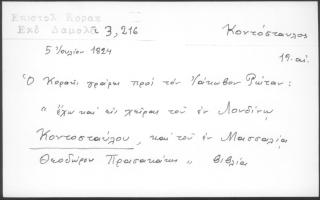 Επιστολ Κοραη
Εκδ Δαμαλᾶ 3, 216
Κοντόσταυλος
5 Ἰουλίου 1824
19. αἰ.
Ὁ Κοραῆς γράφει πρὸς τὸν Ἰάκωβον Ρώταν :
" ἔχω καὶ εἰς χεῖρας τοῦ ἐν Λονδίνῳ
Κοντοσταύλου, καὶ τοῦ ἐν Μασσαλίᾳ
Θεοδώρου Πρασακάκη " βιβλία